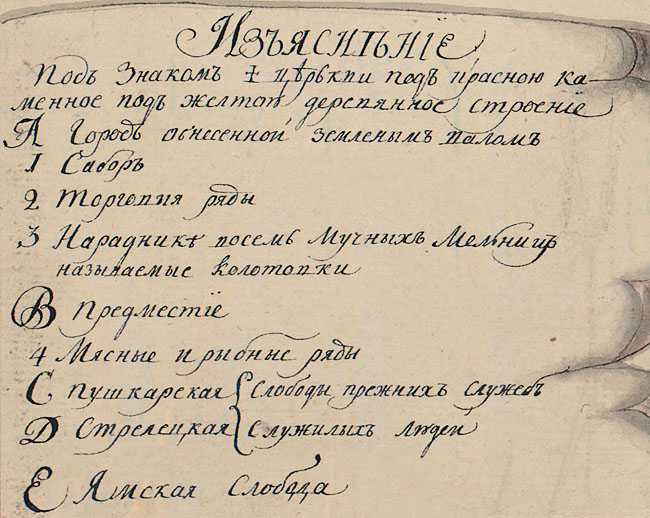 Изъяснѣніе
Подъ знакомъ ‡ цѣрькви подъ красною ка-
менное подъ желтою деревянное строение
А Городъ обнесенной земленымъ валомъ
1 Саборъ
2 Торговия ряды
3 На радникѣ восемь мучныхъ мельницъ
называемые колотовки
B предместіе
4 Мясные и рыбные ряды
C пушкарская { слободы прежнихъ службъ
D Стрелецкая { служилыхъ людей
E Ямская слобода